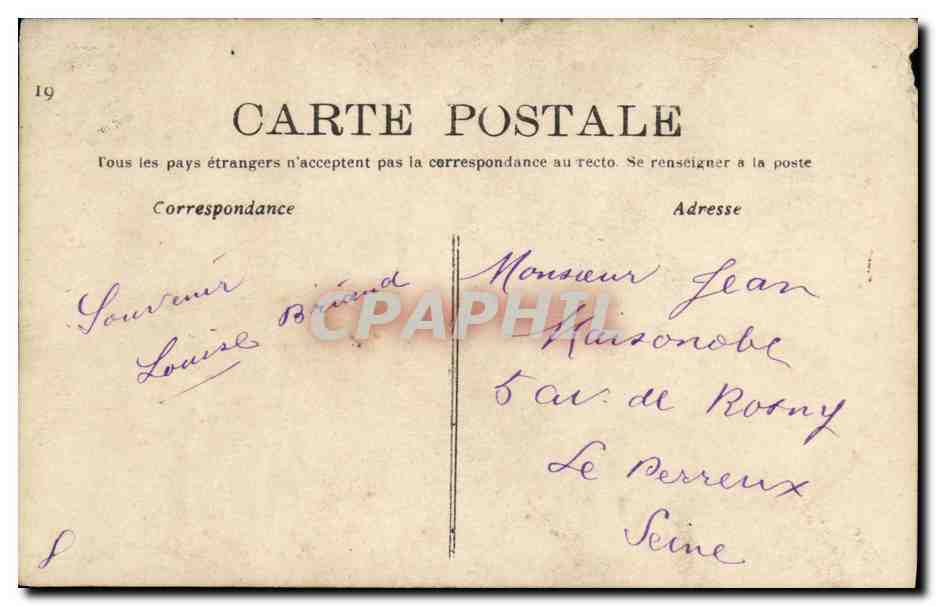 19
CARTE POSTALE
Tous les pays étrangers n'acceptent pas la correspondance au recto. Se renseigner a la poste
Correspondance
Souvenir
Louise Briand
Adresse
Monsieur Jean
Maisonobe
5 av. de Rosny
Le Perreux
Seine
CPAPHIL